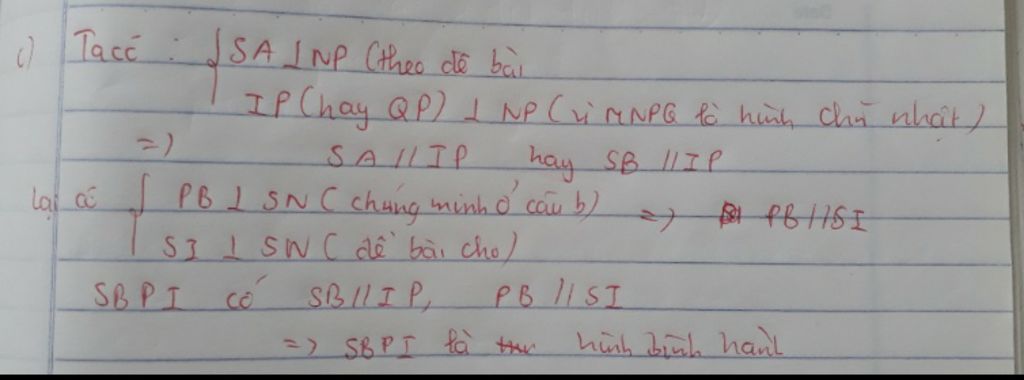 c) Ta có : { SA ⊥ NP (theo đề bài
IP (hay QP) ⊥ NP (vì MNPQ là hình chữ nhật)
=> SA // IP hay SB // IP
Lại có { PB ⊥ SN (chứng minh ở câu b) => PB // SI
SI ⊥ SN (đề bài cho)
SBPI có SB // IP, PB // SI
=> SBPI là hình bình hành